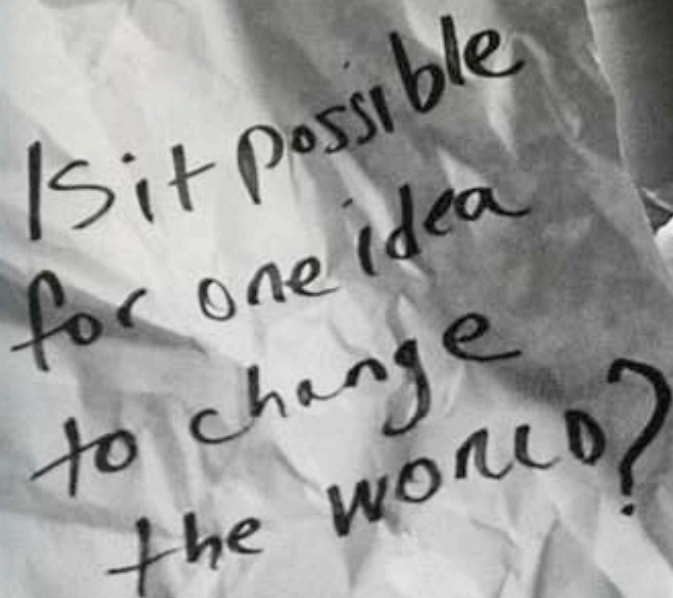 Is it possible
for one idea
to change
the WORLD?